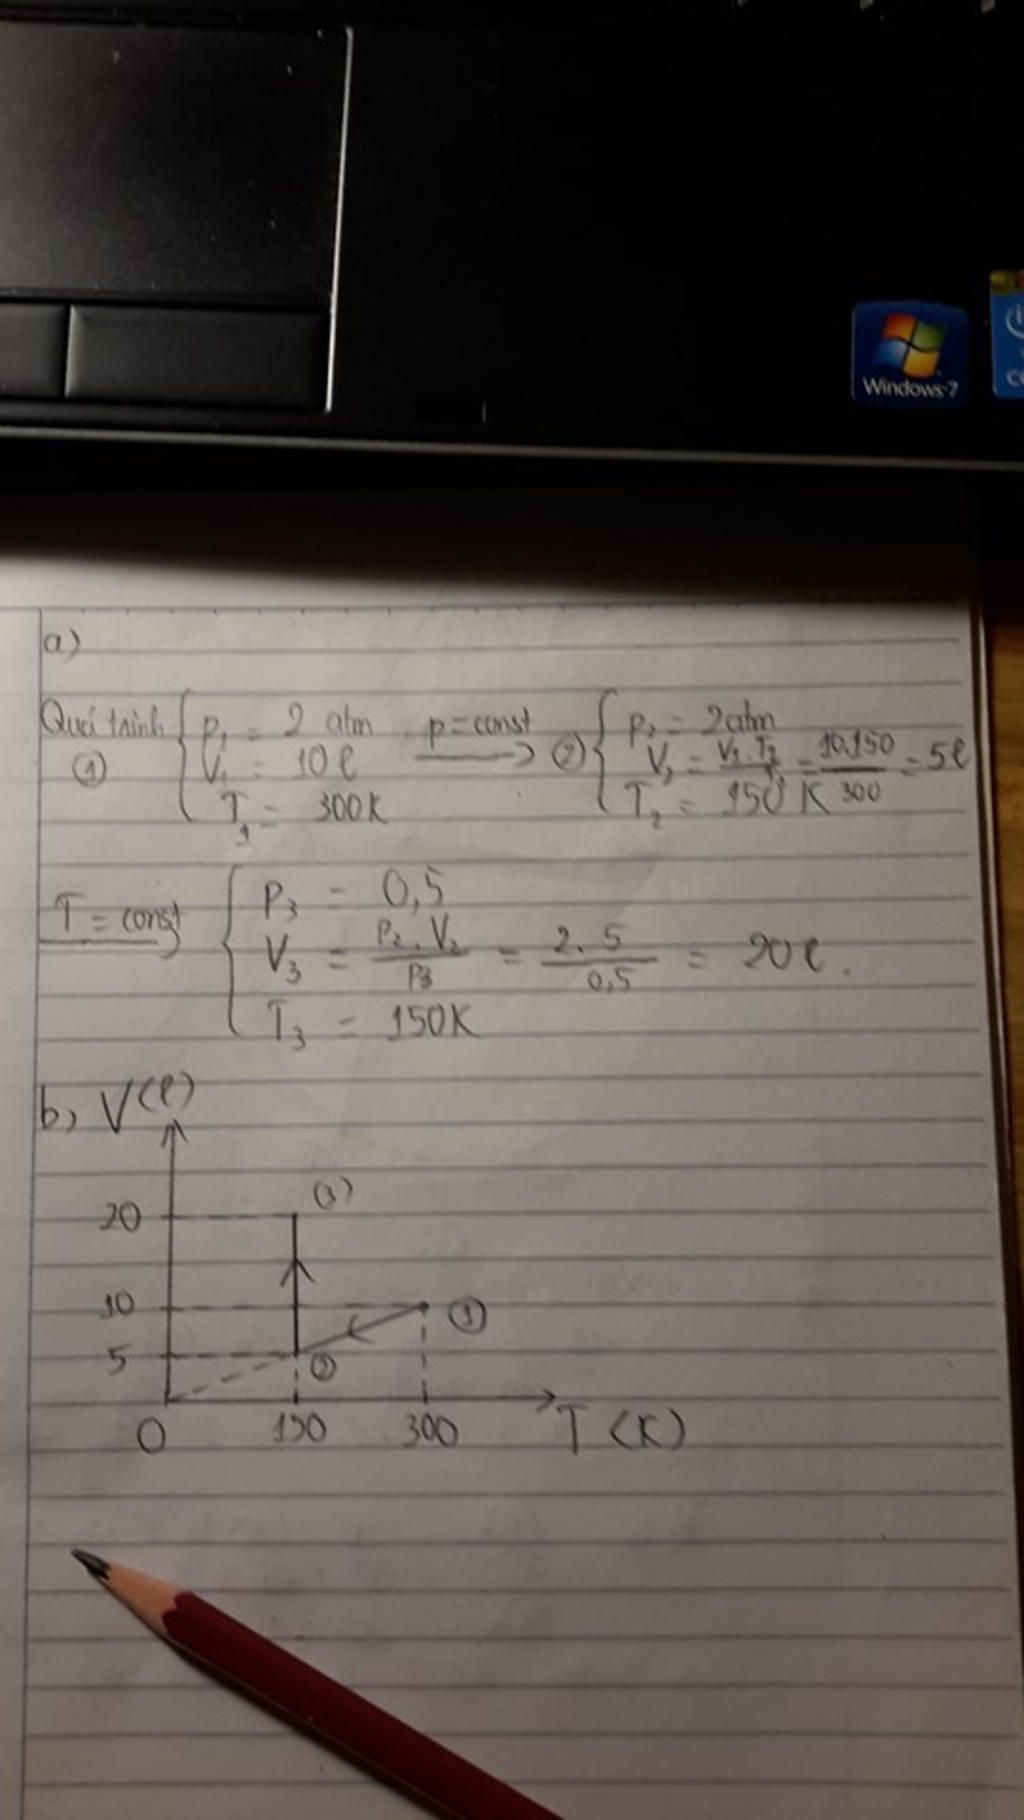 Windows 7
a)
Quá trình
①
p₁ = 2 atm
V₁ = 10 l
T₁ = 300K
p = const
②
p₂ = 2 atm
V₂ = V₁.T₂ / T₁ = 10.150 / 300 = 5 l
T₂ = 150 K
T = const
P₃ = 0,5
V₃ = P₂.V₂ / P₃ = 2.5 / 0,5 = 20 l.
T₃ = 150K
b, V(l)
20 (3)
10 ①
5 ②
O 150 300 T (K)